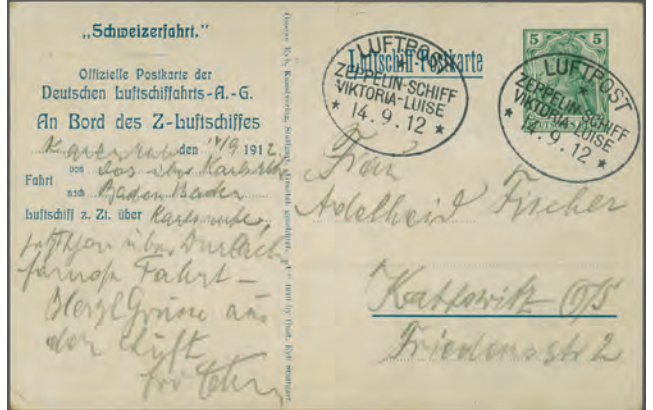 „Schweizerfahrt."
Offizielle Postkarte der
Deutschen Luftschiffahrts-A.-G.
An Bord des Z-Luftschiffes
Karlsruhe den 14/9 1912
Fahrt von Oos über Karlsruhe
nach Baden Baden
Luftschiff z. Zt. über Karlsruhe,
über Durlach
famose Fahrt –
Herzl Grüsse aus
der Luft
Luftschiff-Postkarte
LUFTPOST
ZEPPELIN-SCHIFF
VIKTORIA-LUISE
* 14.9.12 *
5 5
LUFTPOST
ZEPPELIN-SCHIFF
VIKTORIA-LUISE
* 14.9.12 *
Frau
Adelheid Fischer
Kattowitz O/S
Friedensstr 2